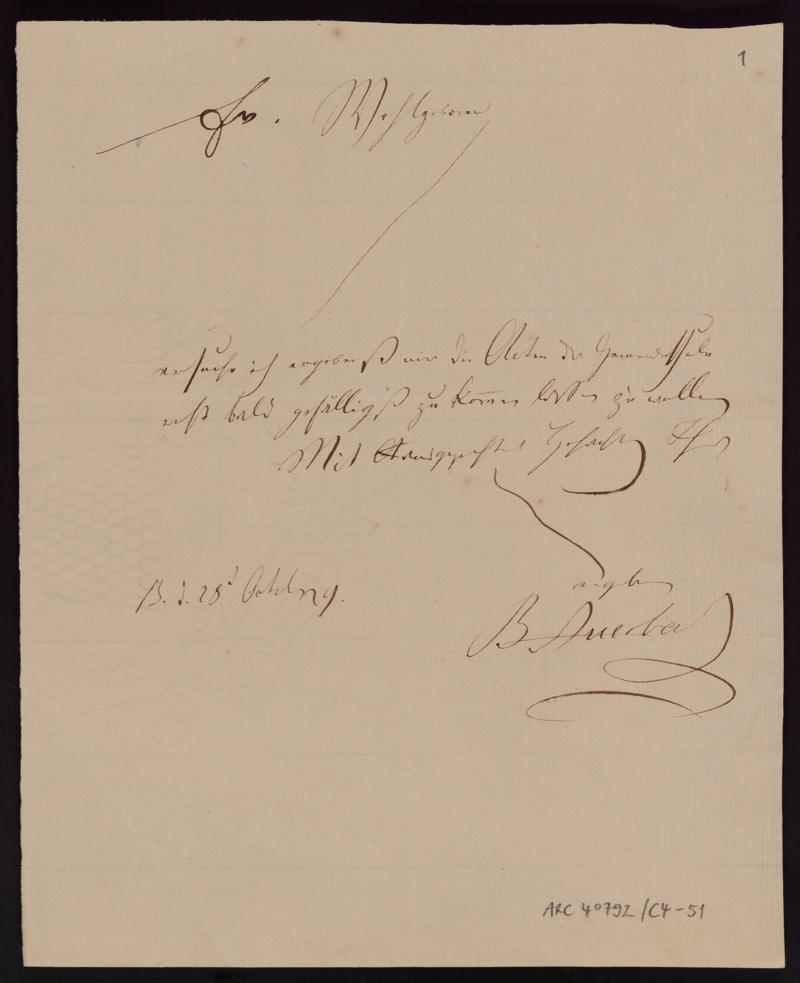 1
Ew. Wohlgeboren
ersuche ich ergebenst mir die Acten der Gemeindeschule
recht bald gefälligst zu kommen lassen zu wollen
Mit Hochachtung Ihr
ergebener
B. d. 28t Octob 29.
B Auerba
ARC 4°792/C4-51